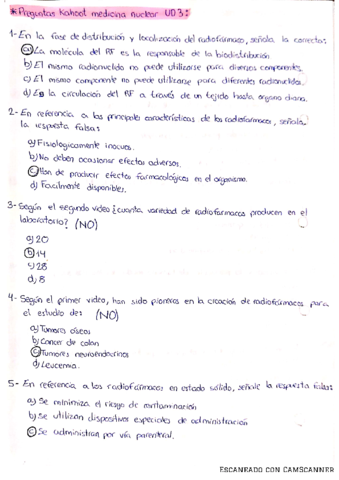 *Preguntas Kahoot medicina nuclear UD3:
1- En la fase de distribución y localización del radiofármaco, señala la correcta:
a) La molécula del RF es la responsable de la biodistribución
b) El mismo radionucleido no puede utilizarse para diversos componentes.
c) El mismo componente no puede utilizarse para diferentes radionucleidos.
d) Es la circulación del RF a través de un tejido hasta órgano diana.
2- En referencia a las principales características de los radiofármacos, señala
la respuesta falsa:
a) Fisiologicamente inocuos.
b) No deben ocasionar efectos adversos.
c) Han de producir efectos farmacológicos en el organismo.
d) Facilmente disponibles.
3- Según el segundo video ¿cuanta variedad de radiofarmacos producen en el
laboratorio? (NO)
a) 20
b) 14
c) 28
d) 8
4- Según el primer video, han sido pioneros en la creación de radiofármacos para
el estudio de: (NO)
a) Tumores óseos
b) Cancer de colon
c) Tumores neuroendocrinos
d) Leucemia.
5- En referencia a los radiofármacos en estado sólido, señale la respuesta falsa:
a) Se minimiza el riesgo de contaminación
b) Se utilizan dispositivos especiales de administración
c) Se administran por vía parenteral.
ESCANEADO CON CAMSCANNER